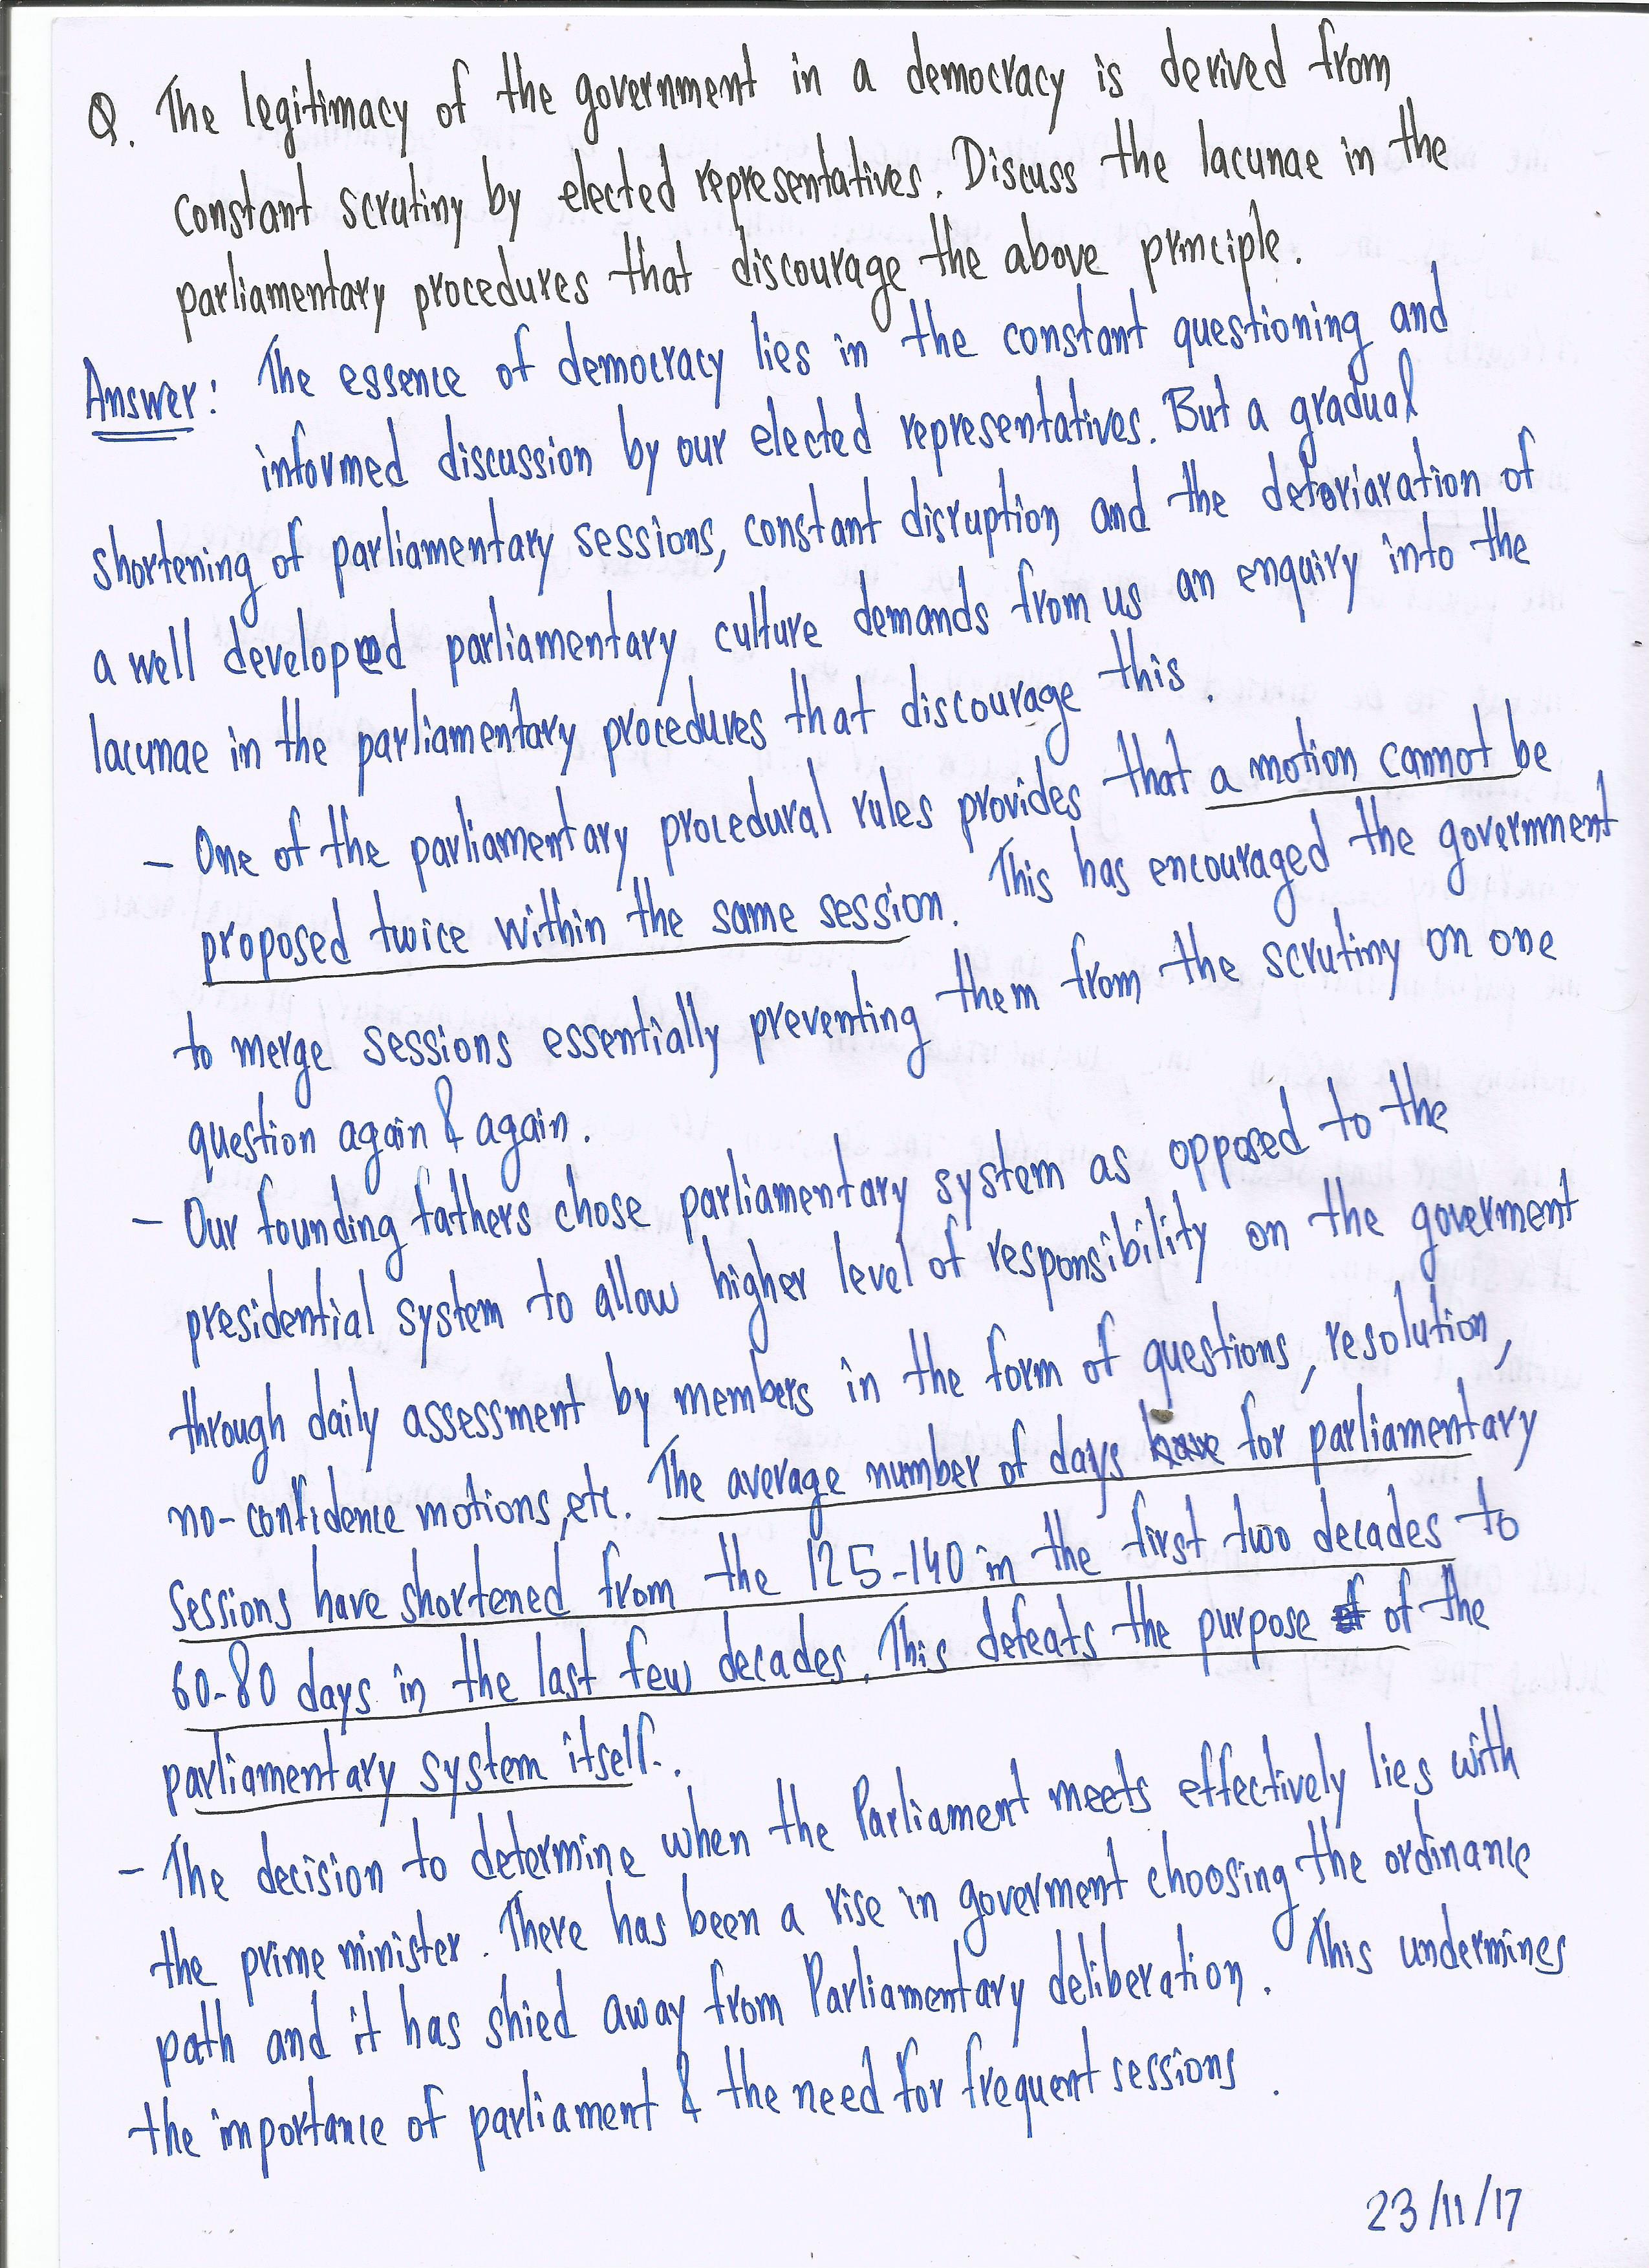 Q. The legitimacy of the government in a democracy is derived from
constant scrutiny by elected representatives. Discuss the lacunae in the
parliamentary procedures that discourage the above principle.
Answer: The essence of democracy lies in the constant questioning and
informed discussion by our elected representatives. But a gradual
shortening of parliamentary sessions, constant disruption and the deterioration of
a well developed parliamentary culture demands from us an enquiry into the
lacunae in the parliamentary procedures that discourage this.
- One of the parliamentary procedural rules provides that a motion cannot be
proposed twice within the same session. This has encouraged the government
to merge sessions essentially preventing them from the scrutiny on one
question again & again.
- Our founding fathers chose parliamentary system as opposed to the
presidential system to allow higher level of responsibility on the goverment
through daily assessment by members in the form of questions, resolution,
no-confidence motions, etc. The average number of days for parliamentary
sessions have shortened from the 125-140 in the first two decades to
60-80 days in the last few decades. This defeats the purpose of the
parliamentary system itself.
- The decision to determine when the Parliament meets effectively lies with
the prime minister. There has been a rise in goverment choosing the ordinance
path and it has shied away from Parliamentary deliberation. This undermines
the importance of parliament & the need for frequent sessions.
23/11/17